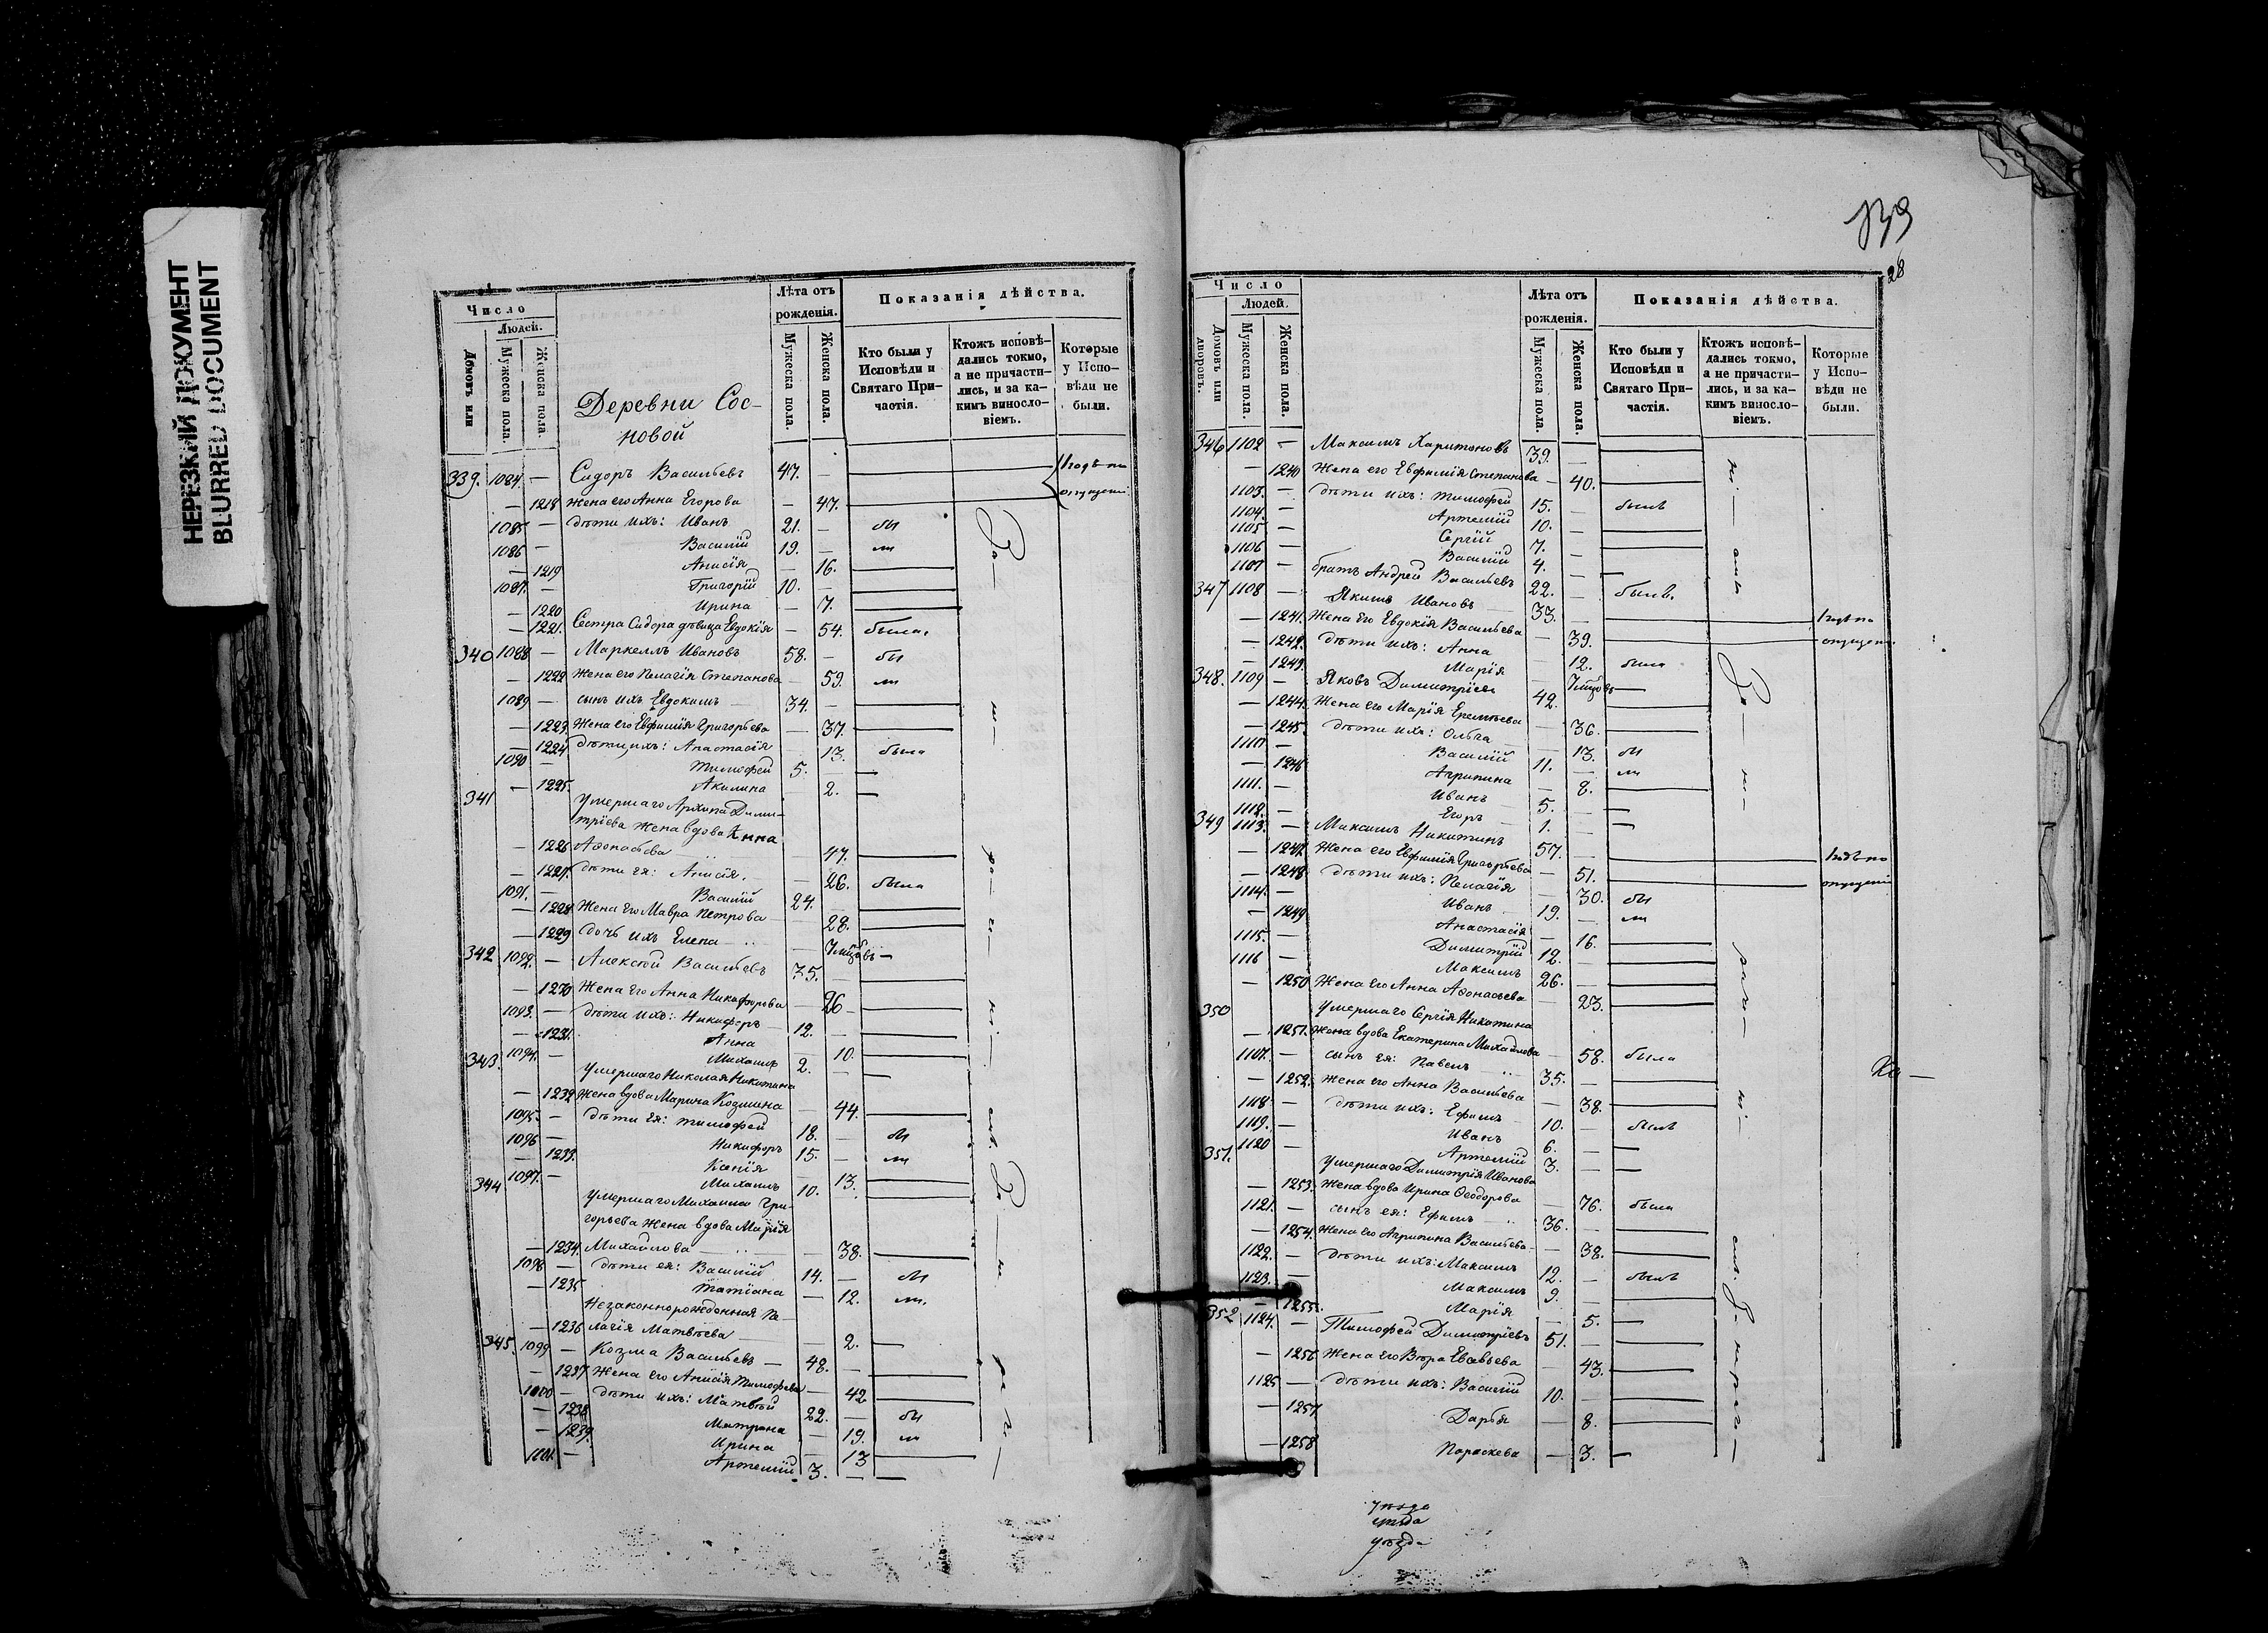 НЕРЕЗКИЙ ДОКУМЕНТ
BLURRED DOCUMENT
Число
Людей.
Домовъ или
Мужеска пола.
Женска пола.
Деревни Сос-
новой
Лѣта отъ
рожденія.
Мужеска пола.
Женска пола.
Показанія дѣйства.
Кто были у
Исповѣди и
Святаго При-
частія.
Ктожъ исповѣ-
дались токмо,
а не причасти-
лись, и за ка-
кимъ винosло-
віемъ.
Которые
у Испо-
вѣди не
были.
339. 1084. — Сидоръ Васильевъ 47. —
— 1218 Жена его Анна Егорова — 47.
1085 — дѣти ихъ: Иванъ 21. — бы
1086 — Василій 19. — ли
— 1219 Анисія — 16.
1087. — Григорій 10. —
— 1220 Ирина — 7.
— 1221. Сестра Сидора дѣвица Евдокія — 54. была.
340 1088 — Маркеллъ Ивановъ 58. — бы
— 1222 Жена его Пелагія Степанова — 59. ли
1089 — сынъ ихъ Евдокимъ 34. —
— 1223. Жена его Евфимія Григорьева — 37.
— 1224 дѣти ихъ: Анастасія — 13. была
1090 — Тимофей 5. —
— 1225. Акилина — 2. —
341 Умершаго Архипа Дими-
тріева жена вдова Анна
— 1226 Афонасьева — 47.
— 1227. дѣти ея: Анисія. — 26. была
1091. — Василій 24. —
— 1228 Жена его Мавра Петрова — 28.
— 1229 дочь ихъ Елена — 7 мцовъ —
342 1092. — Алексѣй Васильевъ 35. —
— 1230 Жена его Анна Никифорова — 26 —
1093. — дѣти ихъ: Никифоръ 12. —
— 1231. Анна — 10.
1094. — Михаилъ 2. —
343. Умершаго Николая Никитина
— 1232 Жена вдова Марина Козмина — 44.
1095. — дѣти ея: Тимофей 18. — бы
1096 — Никифоръ 15. — ли
— 1233. Ксенія — 13.
1097. — Михаилъ 10. —
344 Умершаго Михаила Гри-
горьева жена вдова Марія
— 1234. Михайлова — 38.
1098 — дѣти ея: Василій 14. — бы
— 1235 Татіана — 12. ли.
Незаконнорожденная Пе-
— 1236 лагія Матвѣева — 2. —
345. 1099 — Козма Васильевъ — 48. —
— 1237 Жена его Анисія Тимофеева — 42
1100 — дѣти ихъ: Матвѣй 22. — бы
— 1238 Матрона — 19. ли
— 1239. Ирина — 13
1101. — Артемій 3. — —
139
28
Число
Людей.
Домовъ или
дворовъ.
Мужеска пола.
Женска пола.
Лѣта отъ
рожденія.
Мужеска пола.
Женска пола.
Показанія дѣйства.
Кто были у
Исповѣди и
Святаго При-
частія.
Ктожъ исповѣ-
дались токмо,
а не причасти-
лись, и за ка-
кимъ винosло-
віемъ.
Которые
у Испо-
вѣди не
были.
346 1102 — Максимъ Харитоновъ 39. —
— 1240 Жена его Евфимія Степанова — 40.
1103. — дѣти ихъ: Тимофей 15. — былъ
1104. — Артемій 10. —
1105 — Сергій 7. —
1106 — Василій 4. —
1107 — братъ Андрей Васильевъ 22. — былъ.
347 1108 — Якимъ Ивановъ 33. —
— 1241. Жена его Евдокія Васильева — 39.
— 1242. дѣти ихъ: Анна — 12. была
— 1243. Марія — 7 мцовъ —
348. 1109 — Яковъ Димитріевъ 42. —
— 1244. Жена его Марія Еремѣева — 36.
— 1245. дѣти ихъ: Ольга — 13. бы
1110 — Василій 11. — ли
— 1246 Агрипина — 8.
1111. — Иванъ 5. — —
1112. — Егоръ 1. — —
349 1113. — Максимъ Никитинъ 57. —
— 1247. Жена его Евфимія Григорьева — 51.
— 1248. дѣти ихъ: Пелагія — 30. бы
1114. — Иванъ 19. — ли
— 1249 Анастасія — 16.
1115. — Димитрій 12. —
1116 — Максимъ 26. —
— 1250 Жена его Анна Афонасьева — 23.
350 Умершаго Сергія Никитина
— 1251. Жена вдова Екатерина Михайлова — 58. была
1107. — сынъ ея: Павелъ 35. —
— 1252. Жена его Анна Васильева — 38.
1118. — дѣти ихъ: Ефимъ 10. — былъ
1119. — Иванъ 6. — —
1120 — Артемій 3. — —
351. Умершаго Димитрія Иванова
— 1253. Жена вдова Ирина Ѳеодорова — 76. была
1121. — сынъ ея: Ефимъ 36. —
— 1254. Жена его Агрипина Васильева — 38.
1122. — дѣти ихъ: Максимъ 12. — былъ
1123. — Максимъ 9. —
— 1255. Марія — 5. —
352 1124. — Тимофей Димитріевъ 51. —
— 1256 Жена его Вѣра Евсевьева — 43.
1125 — дѣти ихъ: Василій 10. —
— 1257. Дарья — 8.
— 1258 Параскева — 3. —